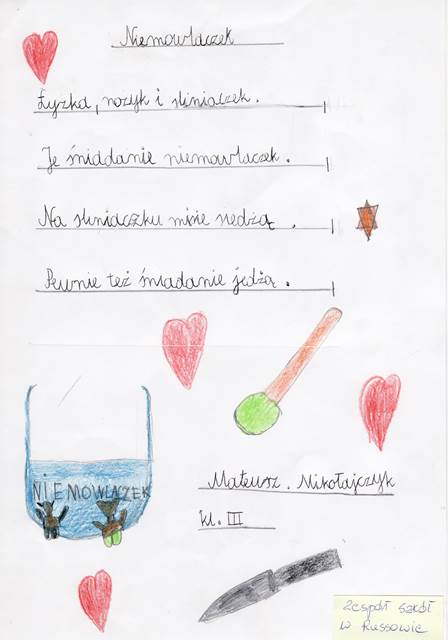 Niemowlaczek
Łyżka, nożyk i śliniaczek.
Je śniadanie niemowlaczek.
Na śliniaczku misie siedzą.
Pewnie też śniadanie jedzą.
NIEMOWLACZEK
Mateusz Mikołajczyk
kl. III
Zespół Szkół
w Russowie